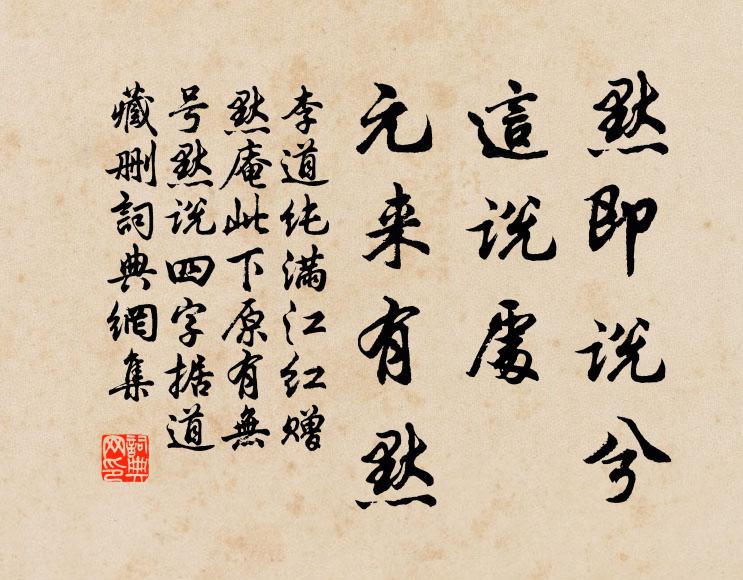 默即说兮
這说處
元来有默
李道纯满江红赠
默庵此下原有無
号默说四字据道
藏删詞典網集
詞典网印